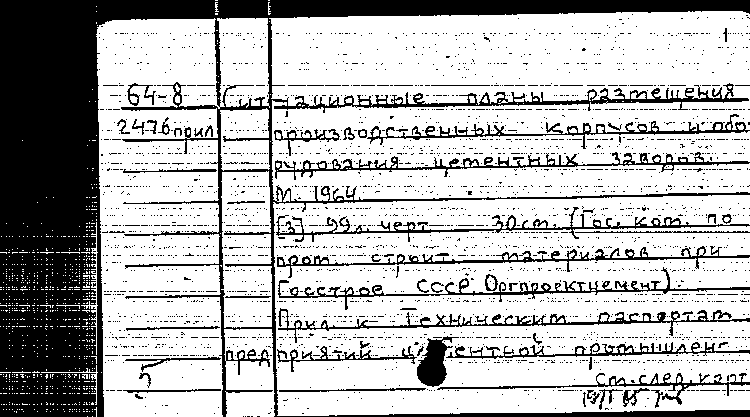 1
64-8 Ситуационные планы размещения
2476прил. производственных корпусов и обо-
рудования цементных заводов.
М., 1964.
[3], 99л. черт. 30см. (Гос. ком. по
пром. строит. материалов при
Госстрое СССР. Оргпроектцемент)
Прил. к Техническим паспортам
предприятий цементной промышлен-
5
см. след. карт.